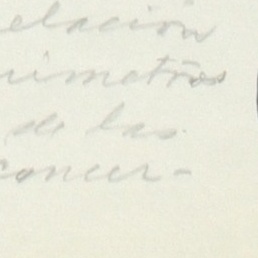 elación
rimetros
de las
concer-